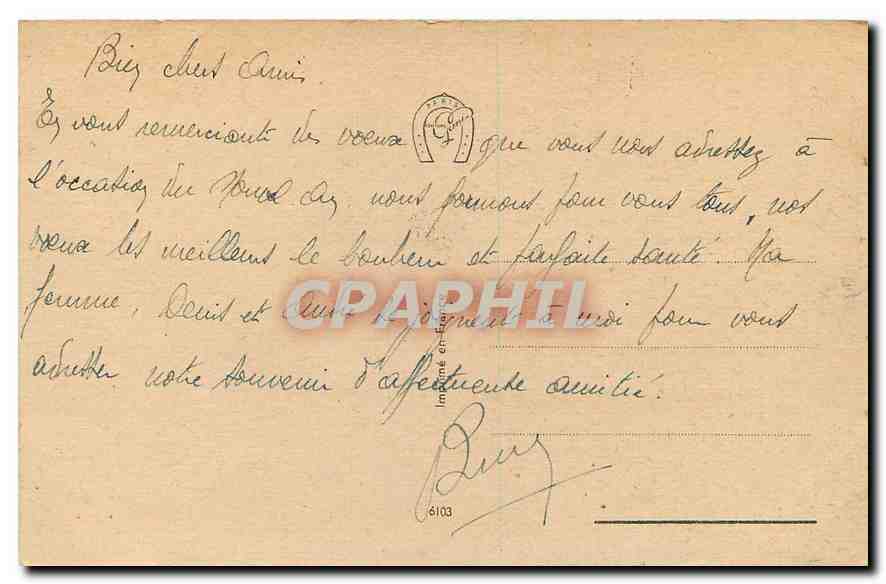 Bien chers Amis
En vous remerciant des voeux que vous nous adressez à
l'occasion du Nouvel An nous formons pour vous tous, nos
voeux les meilleurs de bonheur et parfaite santé. Ma
femme, Denis et Annie se joignent à moi pour vous
adresser notre souvenir d'affectueuse amitié.
PARIS
CPARPHIL
Imprimé en France
6103